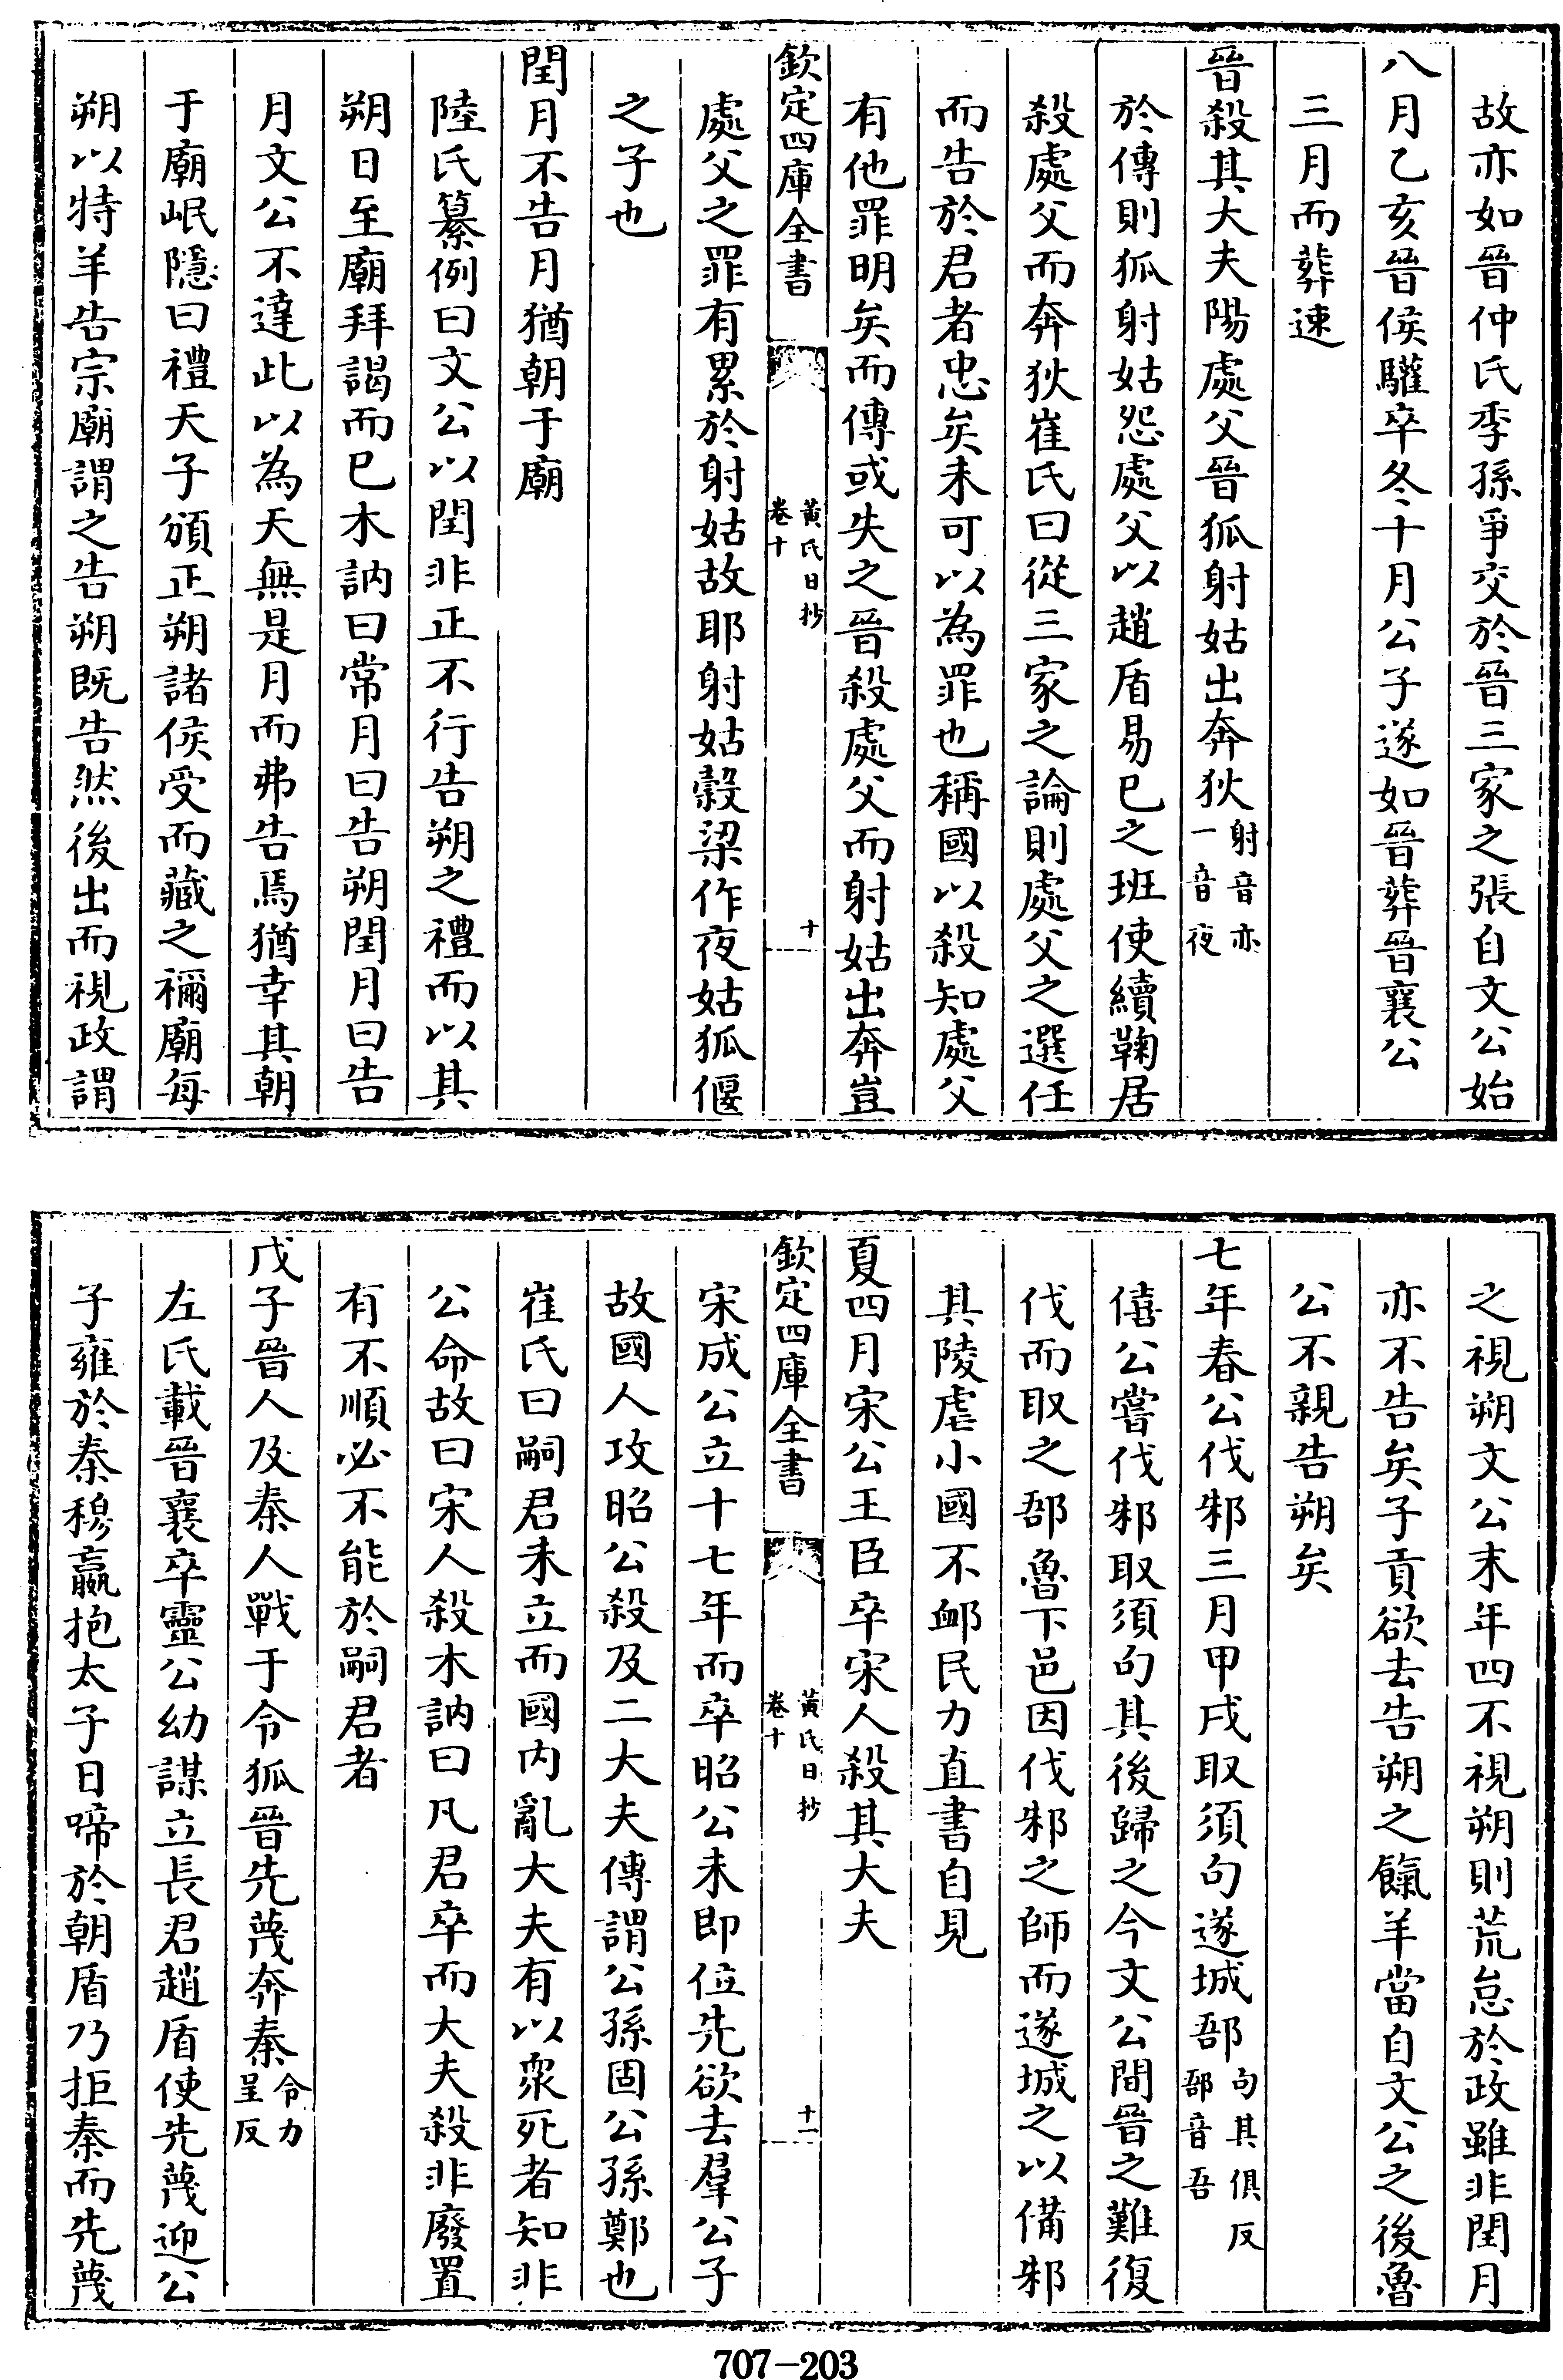 故亦如晉仲氏季孫爭交於晉三家之張自文公始
八月乙亥晉侯驩卒冬十月公子遂如晉葬晉襄公
三月而葬速
晉殺其大夫陽處父晉狐射姑出奔狄射音亦一音夜
於傳則狐射姑怨處父以趙盾易已之班使續鞠居
殺處父而奔狄崔氏曰從三家之論則處父之選任
而告於君者忠矣未可以為罪也稱國以殺知處父
有他罪明矣而傳或失之晉殺處父而射姑出奔豈
欽定四庫全書 黃氏日抄 卷十 十
處父之罪有累於射姑故耶射姑榖梁作夜姑狐偃
之子也
閏月不告月猶朝于廟
陸氏纂例曰文公以閏非正不行告朔之禮而以其
朔日至廟拜謁而已木訥曰常月曰告朔閏月曰告
月文公不達此以為天無是月而弗告焉猶幸其朝
于廟岷隱曰禮天子頒正朔諸侯受而藏之禰廟每
朔以特羊告宗廟謂之告朔既告然後出而視政謂
之視朔文公末年四不視朔則荒怠於政雖非閏月
亦不告矣子貢欲去告朔之餼羊當自文公之後魯
公不親告朔矣
七年春公伐邾三月甲戌取須句遂城郚句其俱反郚音吾
僖公嘗伐邾取須句其後歸之今文公間晉之難復
伐而取之郚魯下邑因伐邾之師而遂城之以備邾
其陵虐小國不䘏民力直書自見
夏四月宋公王臣卒宋人殺其大夫
欽定四庫全書 黃氏日抄 卷十 十一
宋成公立十七年而卒昭公未即位先欲去羣公子
故國人攻昭公殺及二大夫傳謂公孫固公孫鄭也
崔氏曰嗣君未立而國内亂大夫有以衆死者知非
公命故曰宋人殺木訥曰凡君卒而大夫殺非廢置
有不順必不能於嗣君者
戊子晉人及秦人戰于令狐晉先蔑奔秦令力呈反
左氏載晉襄卒靈公幼謀立長君趙盾使先蔑迎公
子雍於秦穆嬴抱太子日啼於朝盾乃拒秦而先蔑
707-203